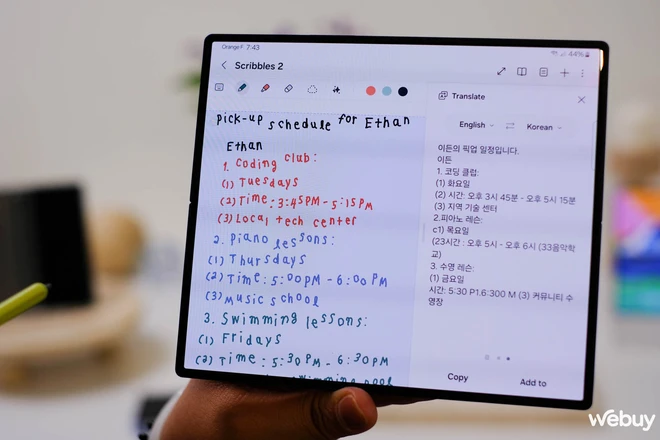 Orange F 7:43
44%
Scribbles 2
pick-up schedule for Ethan
Ethan
1. Coding club:
(1) Tuesdays
(2) Time: 3:45PM - 5:15PM
(3) Local tech center
2. Piano lessons:
(1) Thursdays
(2) Time: 5:00PM - 6:00PM
(3) Music school
3. Swimming lessons:
(1) Fridays
(2) Time: 5:30PM - 6:30PM
swimming pool
Translate
English
Korean
이든의 픽업 일정입니다.
이든
1. 코딩 클럽:
(1) 화요일
(2) 시간: 오후 3시 45분 - 오후 5시 15분
(3) 지역 기술 센터
2.피아노 레슨:
c1) 목요일
(23시간 : 오후 5시 - 오후 6시 (33음악학
교)
3. 수영 레슨:
(1) 금요일
시간: 5:30 P1.6:300 M (3) 커뮤니티 수
영장
Copy
Add to
webuy